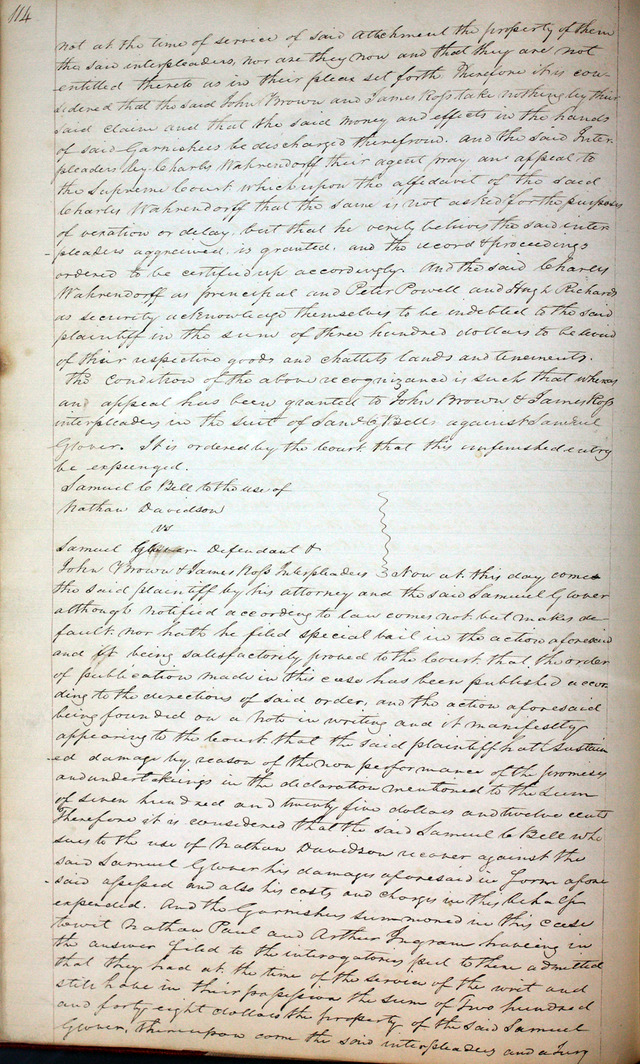 114
not at the time of service of said Attachment the property of them
the said interpleaders, nor are they now and that they are not
entitled thereto as in their pleas set forth Therefore it is con-
sidered that the said John Brown and James Ross take nothing by their
said claim and that the said money and effects in the hands
of said Garnishees be discharged therefrom. And the said Inter-
pleaders by Charles Wahrendorff their agent pray an appeal to
the Supreme Court which upon the affidavit of the said
Charles Wahrendorff that the same is not asked for the purposes
of vexation or delay. but that he verily believes the said inter
pleaders aggreived. is granted. and the record & proceedings
ordered to be certified up accordingly. And the said Charles
Wahrendorff as principal and Peter Powell and Hugh Richards
as security acknowledge themselves to be indebted to the said
plaintiff in the sum of three hundred dollars to be levied
of their respective goods and chattels lands and tenements.
The condition of the above recognizance is such that whereas
an appeal has been granted to John Brown & James Ross
interpleaders in the suit of Saml C Bell against Samuel
Glover. It is ordered by the Court that this unfinished entry
be expunged.
Samuel C Bell to the use of
Nathan Davidson
vs
Samuel Glover Defendant &
John Brown & James Ross Interpleaders } Now at this day comes
the said plaintiff by his attorney and the said Samuel Glover
although notified according to law comes not but makes de-
fault. nor hath he filed special bail in the action aforesaid
and it being satisfactorily proved to the Court that the order
of publication made in this case has been published accor
ding to the directions of said order, and the action aforesaid
being founded on a note in writing and it manifestly
appearing to the Court that the said plaintiff hath sustain
ed damage by reason of the non performance of the promises
and undertakings in the declaration mentioned to the Sum
of seven hundred and twenty five dollars and twelve cents
Therefore it is considered that the said Samuel C Bell who
sues to the use of Nathan Davidson recover against the
said Samuel Glover his damages aforesaid in form afore
said assessed and also his costs and charges in this behalf
expended. And the Garnishees summoned in this case
to wit Nathan Paul and Arthur Ingram haveing in
the answer filed to the interogatories put to them admitted
that they had at the time of the service of the writ and
still have in their possession the sum of Two hundred
and forty eight dollars the property of the said Samuel
Glover, thereupon come the said interpleaders and a Jury